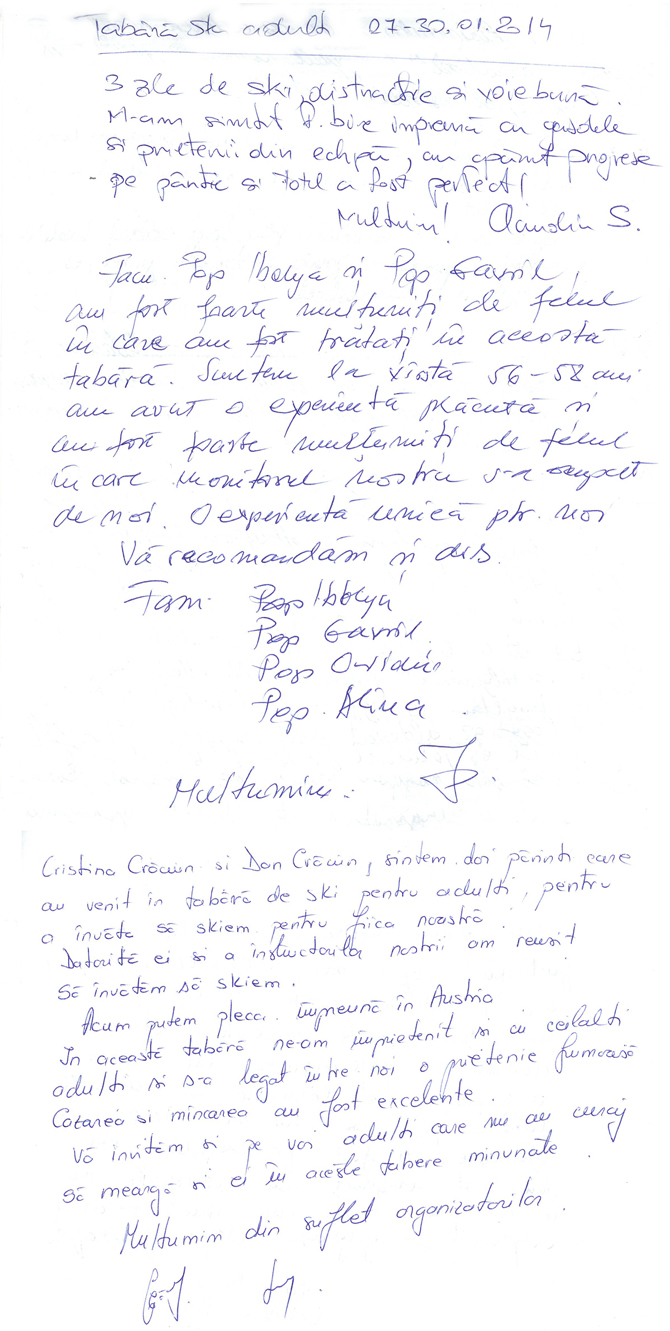 Tabără Ski adulți 27-30.01.2014
3 zile de ski, distractie si voie bună.
M-am simtit f. bine impreună cu gasdele
si prietenii din echipă, au apărut progrese
- pe pântie si totul a fost perfect!
Multumim! Claudia S.
Fam. Pop Ibolya și Pop Gavril,
am fost foarte mulțumiți de felul
în care am fost tratați în această
tabără. Suntem la vîrstă 56-58 ani
am avut o experientă plăcută și
am fost foarte mulțumiți de felul
în care monitorul nostru s-a ocupat
de noi. O experientă unică ptr. noi
Vă recomandăm și dvs.
Fam. Pop Ibolya
Pop Gavril
Pop Ovidiu
Pop Alina.
Multumim.
Cristina Crăciun si Dan Crăciun, sintem doi părinti care
au venit în tabără de ski pentru adulti, pentru
a învăta să skiem pentru fiica noastră.
Datorită ei si a instuctorilor nostrii am reusit
Să învătăm să skiem.
Acum putem pleca împreună în Austria
In această tabără ne-am împrietenit si cu ceilalti
adulti si s-a legat între noi o prietenie frumoasă
Cazarea si mincarea au fost excelente.
Vă invităm si pe voi adulti care nu au curaj
Să meargă si ei în aceste tabere minunate.
Multumim din suflet organizatorilor.